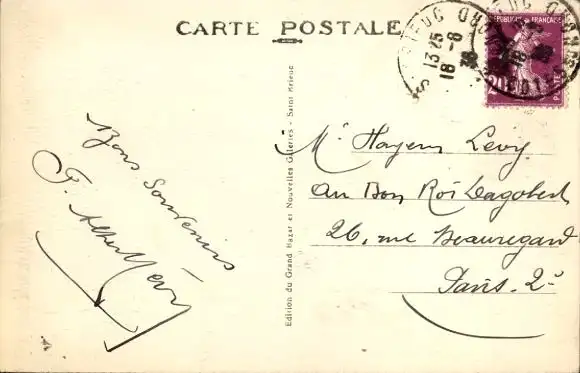 CARTE POSTALE
ST BRIEUC
13 25
18 -8
REPUBLIQUE FRANÇAISE
20
POSTES
Bons Souvenirs
Edition du Grand Bazar et Nouvelles Galeries - Saint Brieuc
Mr Hayem Levy
Au Bon Roi Dagobert
26, rue Beauregard
Paris. 2e